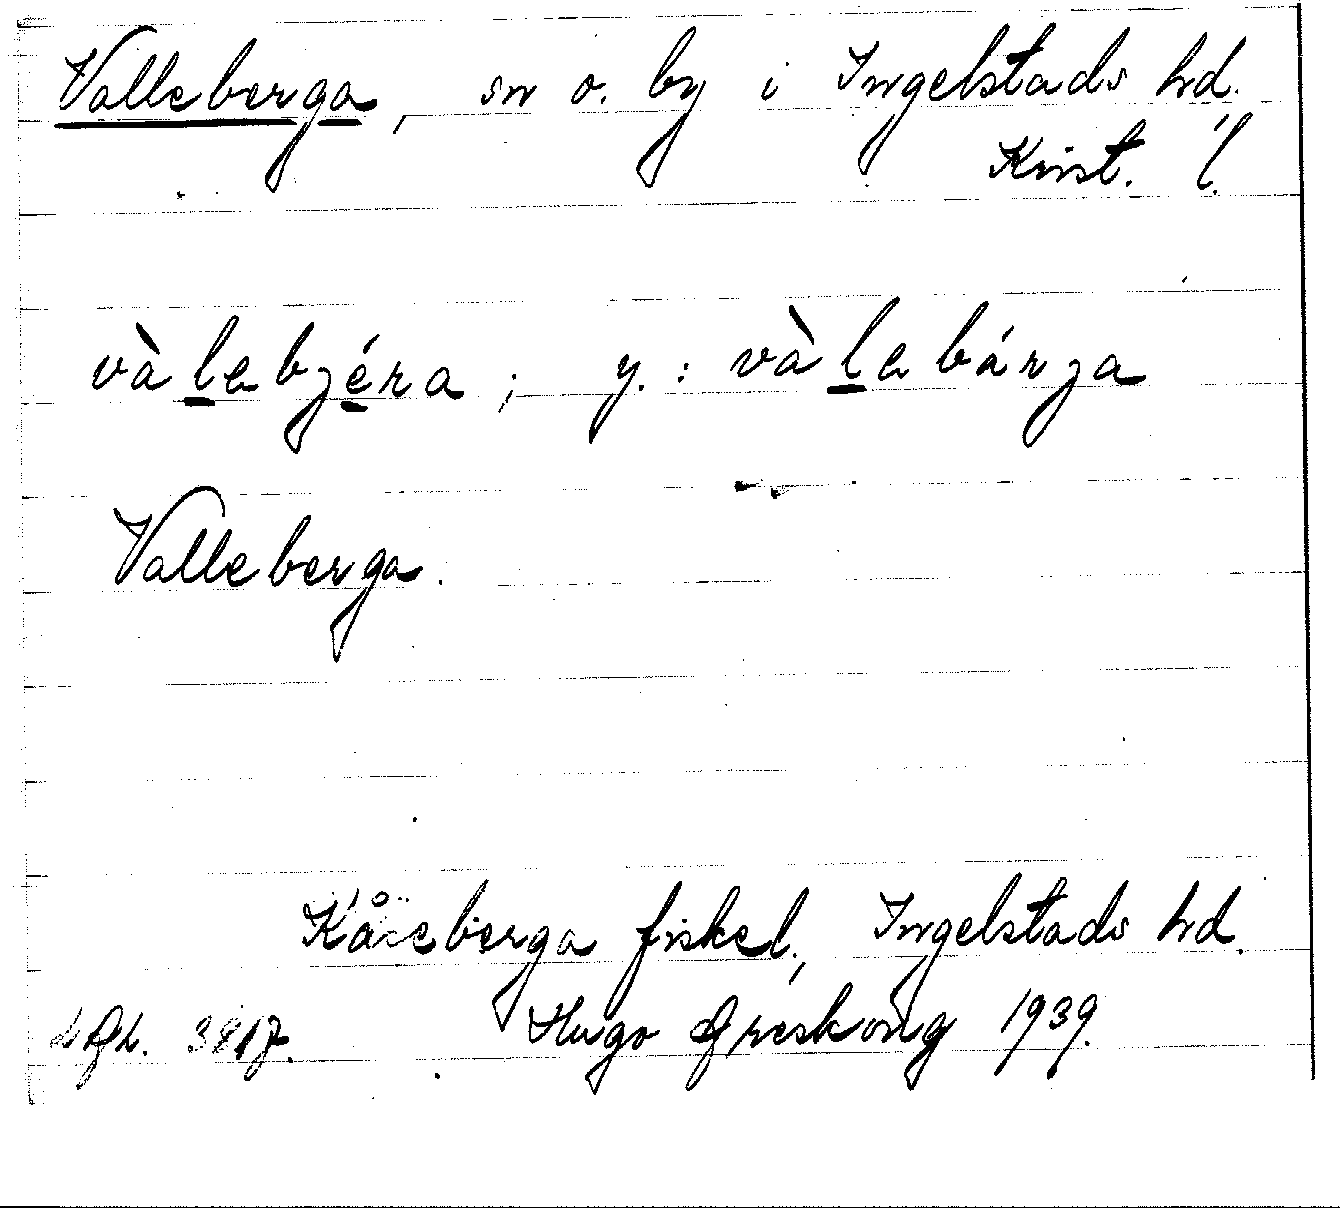 Valleberga, sn o. by i Ingelstads hd.
Krist. l.
vàlebjéra; y.: vàlebárja
Valleberga.
Kåseberga fiskel., Ingelstads hd.
Hugo Areskoug 1939.